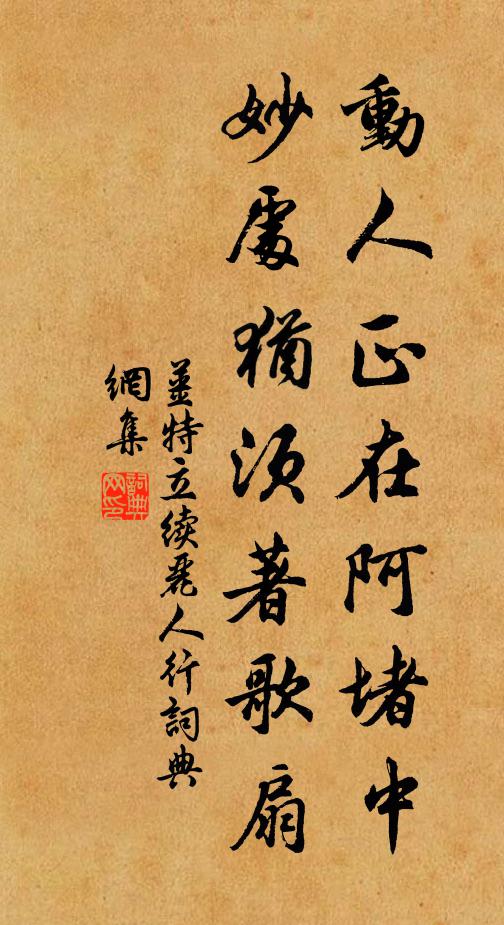 動人正在阿堵中
妙處猶須著歌扇
姜特立續麗人行詞典
網集
詞典
网印